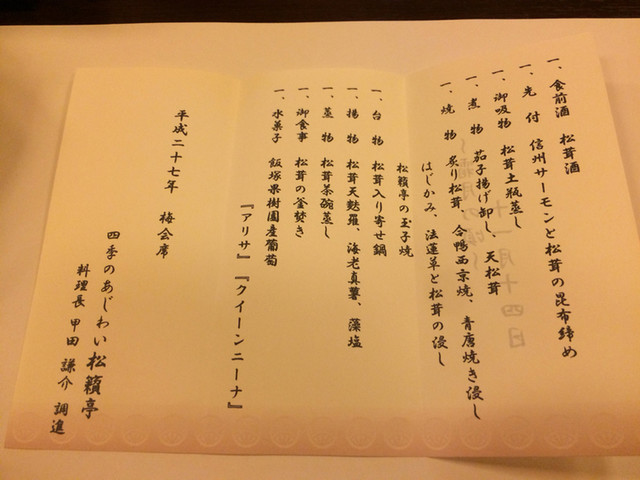 一、食前酒 松茸酒
一、先 付 信州サーモンと松茸の昆布締め
一、御吸物 松茸土瓶蒸し
一、煮 物 茄子揚げ卸し、天松茸
一、焼 物 炙り松茸、合鴨西京焼、青唐焼き浸し
はじかみ、法蓮草と松茸の浸し
松籟亭の玉子焼
一、台 物 松茸入り寄せ鍋
一、揚 物 松茸天麩羅、海老真薯、藻塩
一、蒸 物 松茸茶碗蒸し
一、御食事 松茸の釜焚き
一、水菓子 飯塚果樹園産葡萄
『アリサ』『クイーンニーナ』
平成二十七年 梅会席
四季のあじわい 松籟亭
料理長 甲田 謙介 調進
十一月十四日